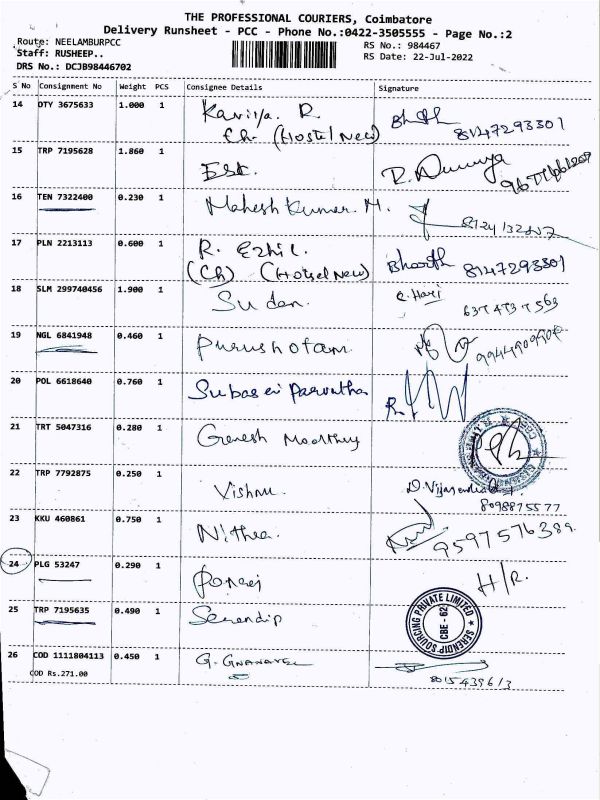 THE PROFESSIONAL COURIERS, Coimbatore
Delivery Runsheet - PCC - Phone No.:0422-3505555 - Page No.:2
Route: NEELAMBURPCC
RS No.: 984467
Staff: RUSHEEP..
RS Date: 22-Jul-2022
DRS No.: DCJB98446702
S No Consignment No Weight PCS Consignee Details Signature
14 DTY 3675633 1.000 1 Kaviya. R. 8147293301
Ch (Hostel New)
15 TRP 7195628 1.860 1
16 TEN 7322400 0.230 1 Mahesh Kumar. M.
17 PLN 2213113 0.600 1 R. Ezhil. Bharath 8147293301
(Ch) (Hostel New)
18 SLM 299740456 1.900 1 Sudan. C. Hari
637 473 7563
19 NGL 6841948 0.460 1 Purushotam.
20 POL 6618640 0.760 1
21 TRT 5047316 0.280 1 Ganesh Moorthy
22 TRP 7792875 0.250 1 Vishnu.
8098875577
23 KKU 460861 0.750 1 Nithea. 9597576389.
24 PLG 53247 0.290 1 H/R.
25 TRP 7195635 0.490 1 Serendip
SERENDIP SOURCING PRIVATE LIMITED
CBE - 62
26 COD 1111804113 0.450 1 G. Gnanavel
COD Rs.271.00